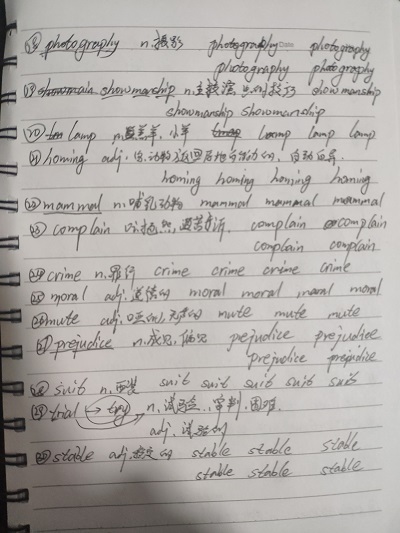 ⑱ photography n.摄影 photography Date photography
photography photography
⑲ showmanship n.主教演出的技巧 showmanship
showmanship showmanship
⑳ lamp n. 羔羊,小羊 lamp lamp lamp
㉑ homing adj. 有动物返回居地导航的,自动追寻.
homing homing homing homing
㉒ mammal n.哺乳动物 mammal mammal mammal
㉓ complain complain complain
complain complain
㉔ crime n.罪行 crime crime crime crime
㉕ moral adj.道德的 moral moral moral moral
㉖ mute adj.哑的, mute mute mute
㉗ prejudice n.成见,偏见 prejudice prejudice
prejudice prejudice
㉘ suit n.西装 suit suit suit suit suit
㉙ trial → try n.试验,审判,困难.
adj.试验的
㉚ stable adj.稳定的 stable stable stable
stable stable stable